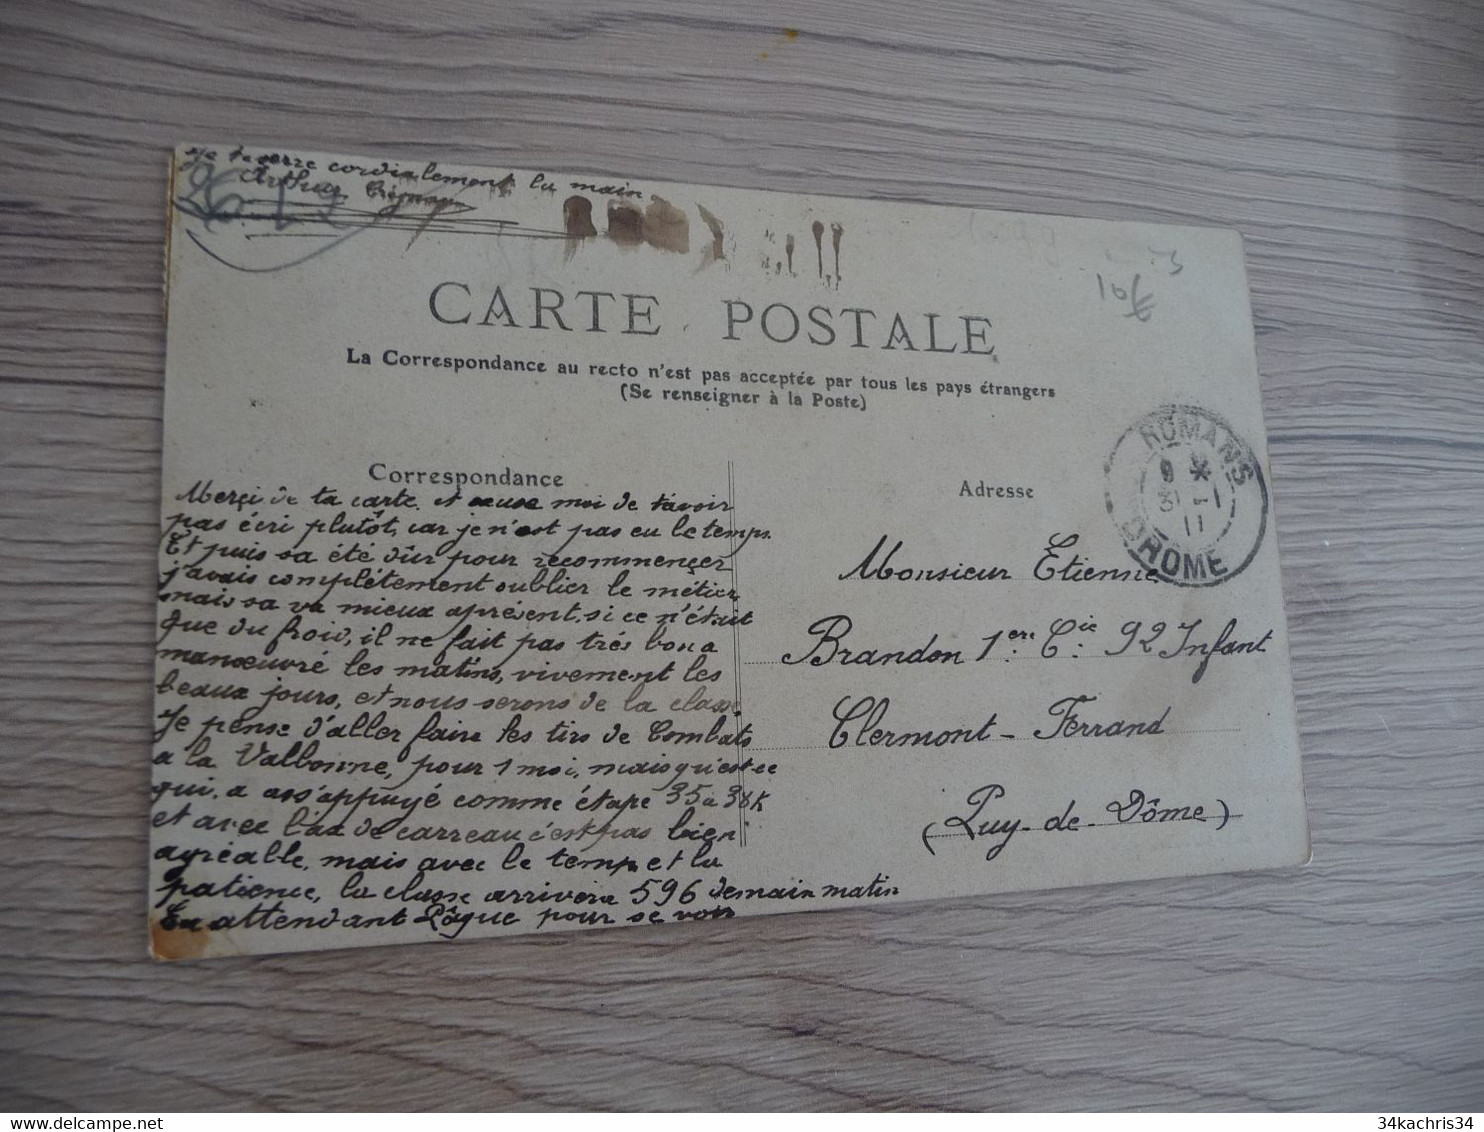 Je te serre cordialement la main
Arthur
10€
CARTE POSTALE
La Correspondance au recto n'est pas acceptée par tous les pays étrangers
(Se renseigner à la Poste)
Correspondance
Merçi de ta carte et excuse moi de t'avoir
pas écri plutôt, car je n'est pas eu le temps.
Et puis sa été dûr pour recommençer
j'avais complétement oublier le métier
mais sa va mieux aprésent, si ce n'était
que du froid, il ne fait pas trés bon a
manœuvré les matins, vivement les
beaux jours, et nous serons de la classe
Je pense d'aller faire les tirs de Combats
a la Valbonne, pour 1 moi, mais qu'est-ce
qui, a ass'appuyé comme étape 35 a 38K
et avec l'as de carreau c'est pas bien
agréable, mais avec le temp et la
patience, la classe arrivera 596 demain matin
En attendant Pâque pour se voir
Adresse
ROMANS
9 *
31 -1
11
DROME
Monsieur Etienne
Brandon 1ere Cie 92 Infant
Clermont-Ferrand
(Puy-de-Dôme)
34kachris34